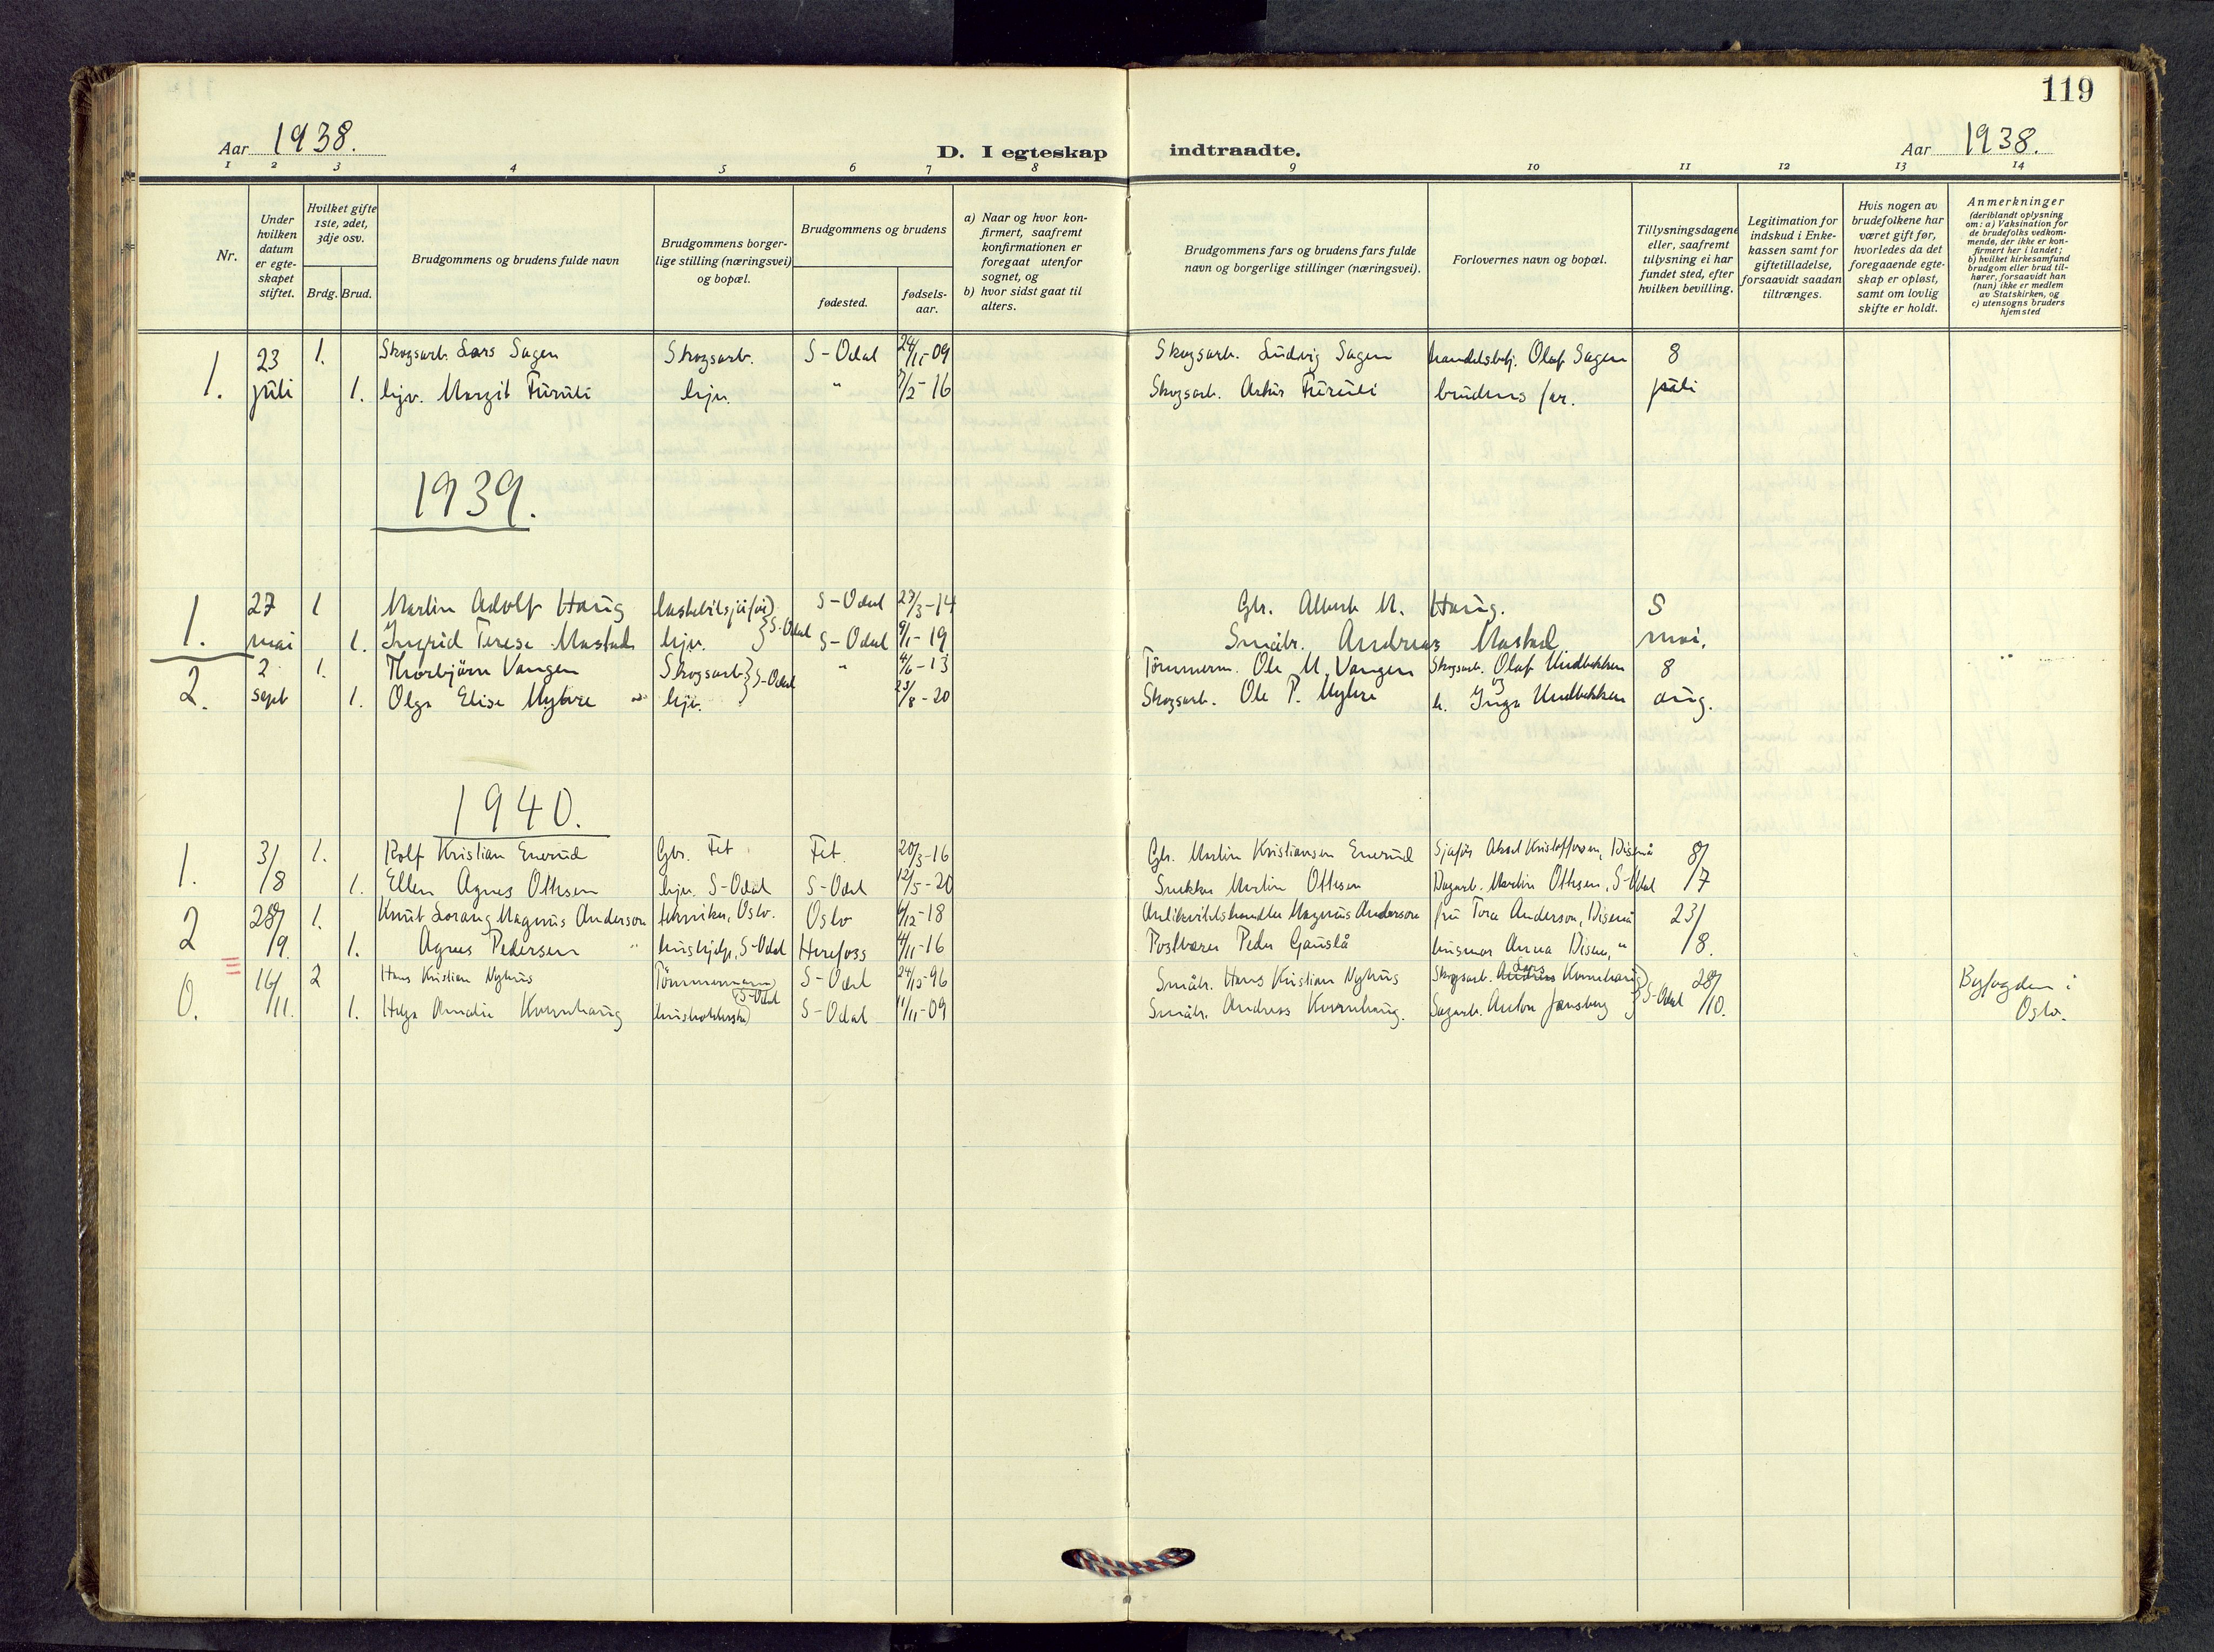 119
Aar 1938.
D. I egteskap indtraadte.
Aar 1938.
1 2 3 4 5 6 7 8 9 10 11 12 13 14
Nr.
Under hvilken datum er egteskapet stiftet.
Hvilket gifte 1ste, 2det, 3dje osv.
Brdg. Brud.
Brudgommens og brudens fulde navn
Brudgommens borgerlige stilling (næringsvei) og bopæl.
Brudgommens og brudens
fødested.
fødselsaar.
a) Naar og hvor konfirmert, saafremt konfirmationen er foregaat utenfor sognet, og
b) hvor sidst gaat til alters.
Brudgommens fars og brudens fars fulde navn og borgerlige stillinger (næringsvei).
Forlovernes navn og bopæl.
Tillysningsdagene eller, saafremt tillysning ei har fundet sted, efter hvilken bevilling.
Legitimation for indskud i Enkekassen samt for giftetilladelse, forsaavidt saadan tiltrænges.
Hvis nogen av brudefolkene har været gift før, hvorledes da det foregaaende egteskap er opløst, samt om lovlig skifte er holdt.
Anmerkninger (deriblandt oplysning om: a) Vaksination for de brudefolks vedkommende, der ikke er konfirmert her i landet; b) hvilket kirkesamfund brudgom eller brud tilhører, forsaavidt han (hun) ikke er medlem av Statskirken, og c) utensogns bruders hjemsted
1. 23 1. Skogsarb. Lars Sagen Skogsarb. S-Odal 24/11-09 Skogsarb. Ludvig Sagen handelsbetj. Olaf Sagen 8
juli 1. hjv. Margit Furuli hjv. " 7/2-16 Skogsarb. Artur Furuli brudens far. juli
1939.
1. 27 1 Martin Adolf Haug S-Odal 27/3-14 Gbr. Albert M. Haug. 5
mai 1. Ingrid Terese Mastad hjv. } S-Odal S-Odal 9/1-19 Småbr. Andreas Mastad mai.
2. 2 1. Thorbjörn Vangen Skogsarb } S-Odal " 4/6-13 Tömmerm. Ole M. Vangen Skogsarb. Olaf Undbekken 8
sept 1. Olga Elise Myhre hjv. 23/8-20 Skogsarb. Ole P. Myhre og h. Inga Undbekken aug.
1940.
1. 3/ 1. Rolf Kristian Enerud Gbr. Fet Fet. 20/3-16 Gbr. Martin Kristiansen Enerud Sjaför Aksel Kristoffersen, Disenå 8/
/8 1. Ellen Agnes Ottesen hjv. S-Odal S-Odal 12/5-20 Snekker Martin Ottesen Dagarb. Martin Ottesen, S-Odal /7
2 28/ 1. Knut Lorang Magnus Anderson tekniker, Oslo. Oslo 6/12-18 Antikvitetshandler Magnus Anderson fru Tora Anderson, Disenå 23/
/9. 1. Agnes Pedersen " hushjelp, S-Odal Herefoss 4/11-16 Postbærer Peder Gauslå husmor Anna Disen, " /8.
0. 16/ 2 Hans Kristian Nyhus Tömmermann S-Odal 24/15-96 Småbr. Hans Kristian Nyhus Skogsarb. Andreas Lars Kvernhaug 28/ Byfogden i
/11. 1. Helga Amalie Kvernhaug husholderske } S-Odal S-Odal 11/11-09 Småbr. Andreas Kvernhaug. Sagarb. Anton Jansberg } S-Odal /10. Oslo.